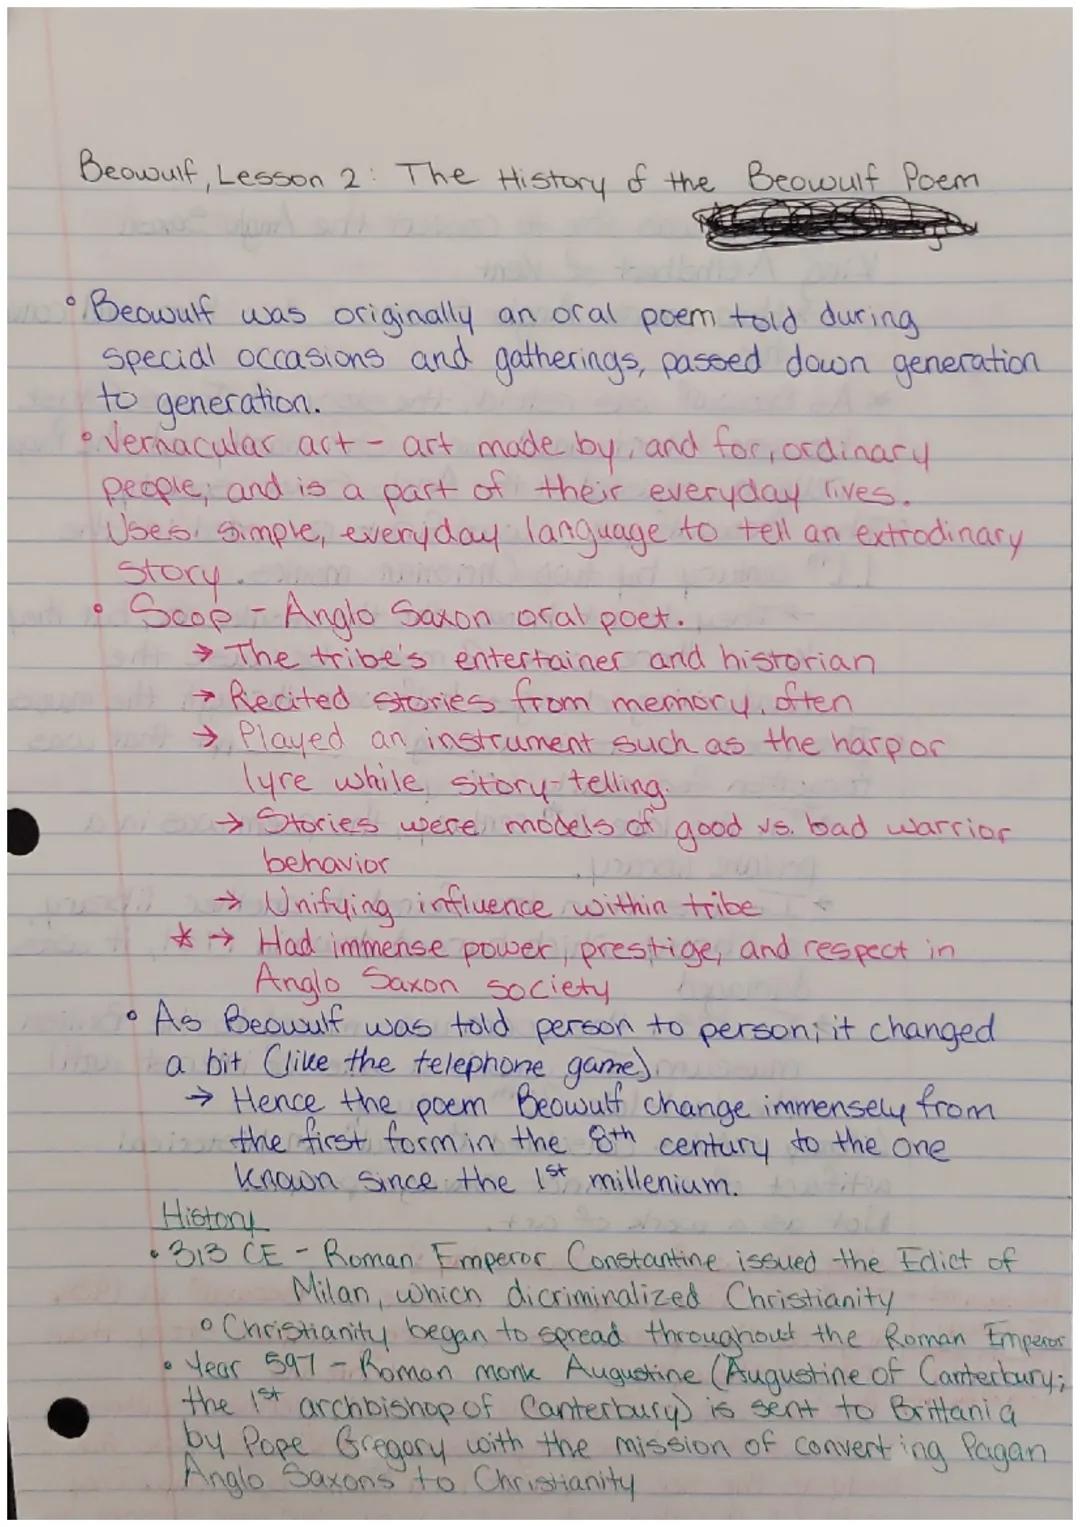 Beowulf, Lesson 2: The History of the Beowulf Poem
• Beowulf was originally an oral poem told during
special occasions and gatherings, passed down generation
to generation.
• Vernacular art - art made by, and for, ordinary
people, and is a part of their everyday lives.
Uses simple, everyday language to tell an extrodinary
story.
• Scop - Anglo Saxon oral poet.
→ The tribe's entertainer and historian
→ Recited stories from memory, often
→ Played an instrument such as the harp or
lyre while story-telling.
→ Stories were models of good vs. bad warrior
behavior
→ Unifying influence within tribe
* → Had immense power, prestige, and respect in
Anglo Saxon society
• As Beowulf was told person to person, it changed
a bit (like the telephone game)
→ Hence the poem Beowulf change immensely from
the first form in the 8th century to the one
known since the 1st millenium.
History
• 313 CE - Roman Emperor Constantine issued the Edict of
Milan, which dicriminalized Christianity
• Christianity began to spread throughout the Roman Emperor
• Year 597 - Roman monk Augustine (Augustine of Canterbury;
the 1st archbishop of Canterbury) is sent to Brittania
by Pope Gregory with the mission of converting Pagan
Anglo Saxons to Christianity